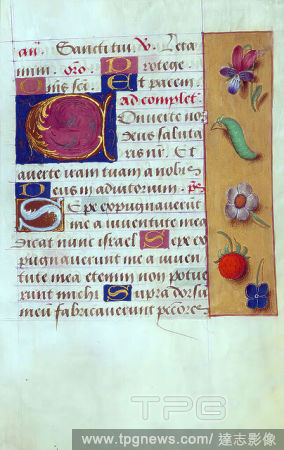 añ. Sancti tui. V. Leta
mini. oro. Protege
Omis sci. Et pacem
ad complet.
Conuerte nos
deus saluta
ris nr. Et
auerte iram tuam a nobis
Deus in adiutorium. ps.
Sepe expugnauerunt
me a iuuentute mea
dicat nunc israel Sepe ex
pugnauerunt me a iuuen
tute mea etenim non potue
runt michi Supra dorsū
meū fabricauerunt peccōres
TPG
www.tpgnews.com/達志影像